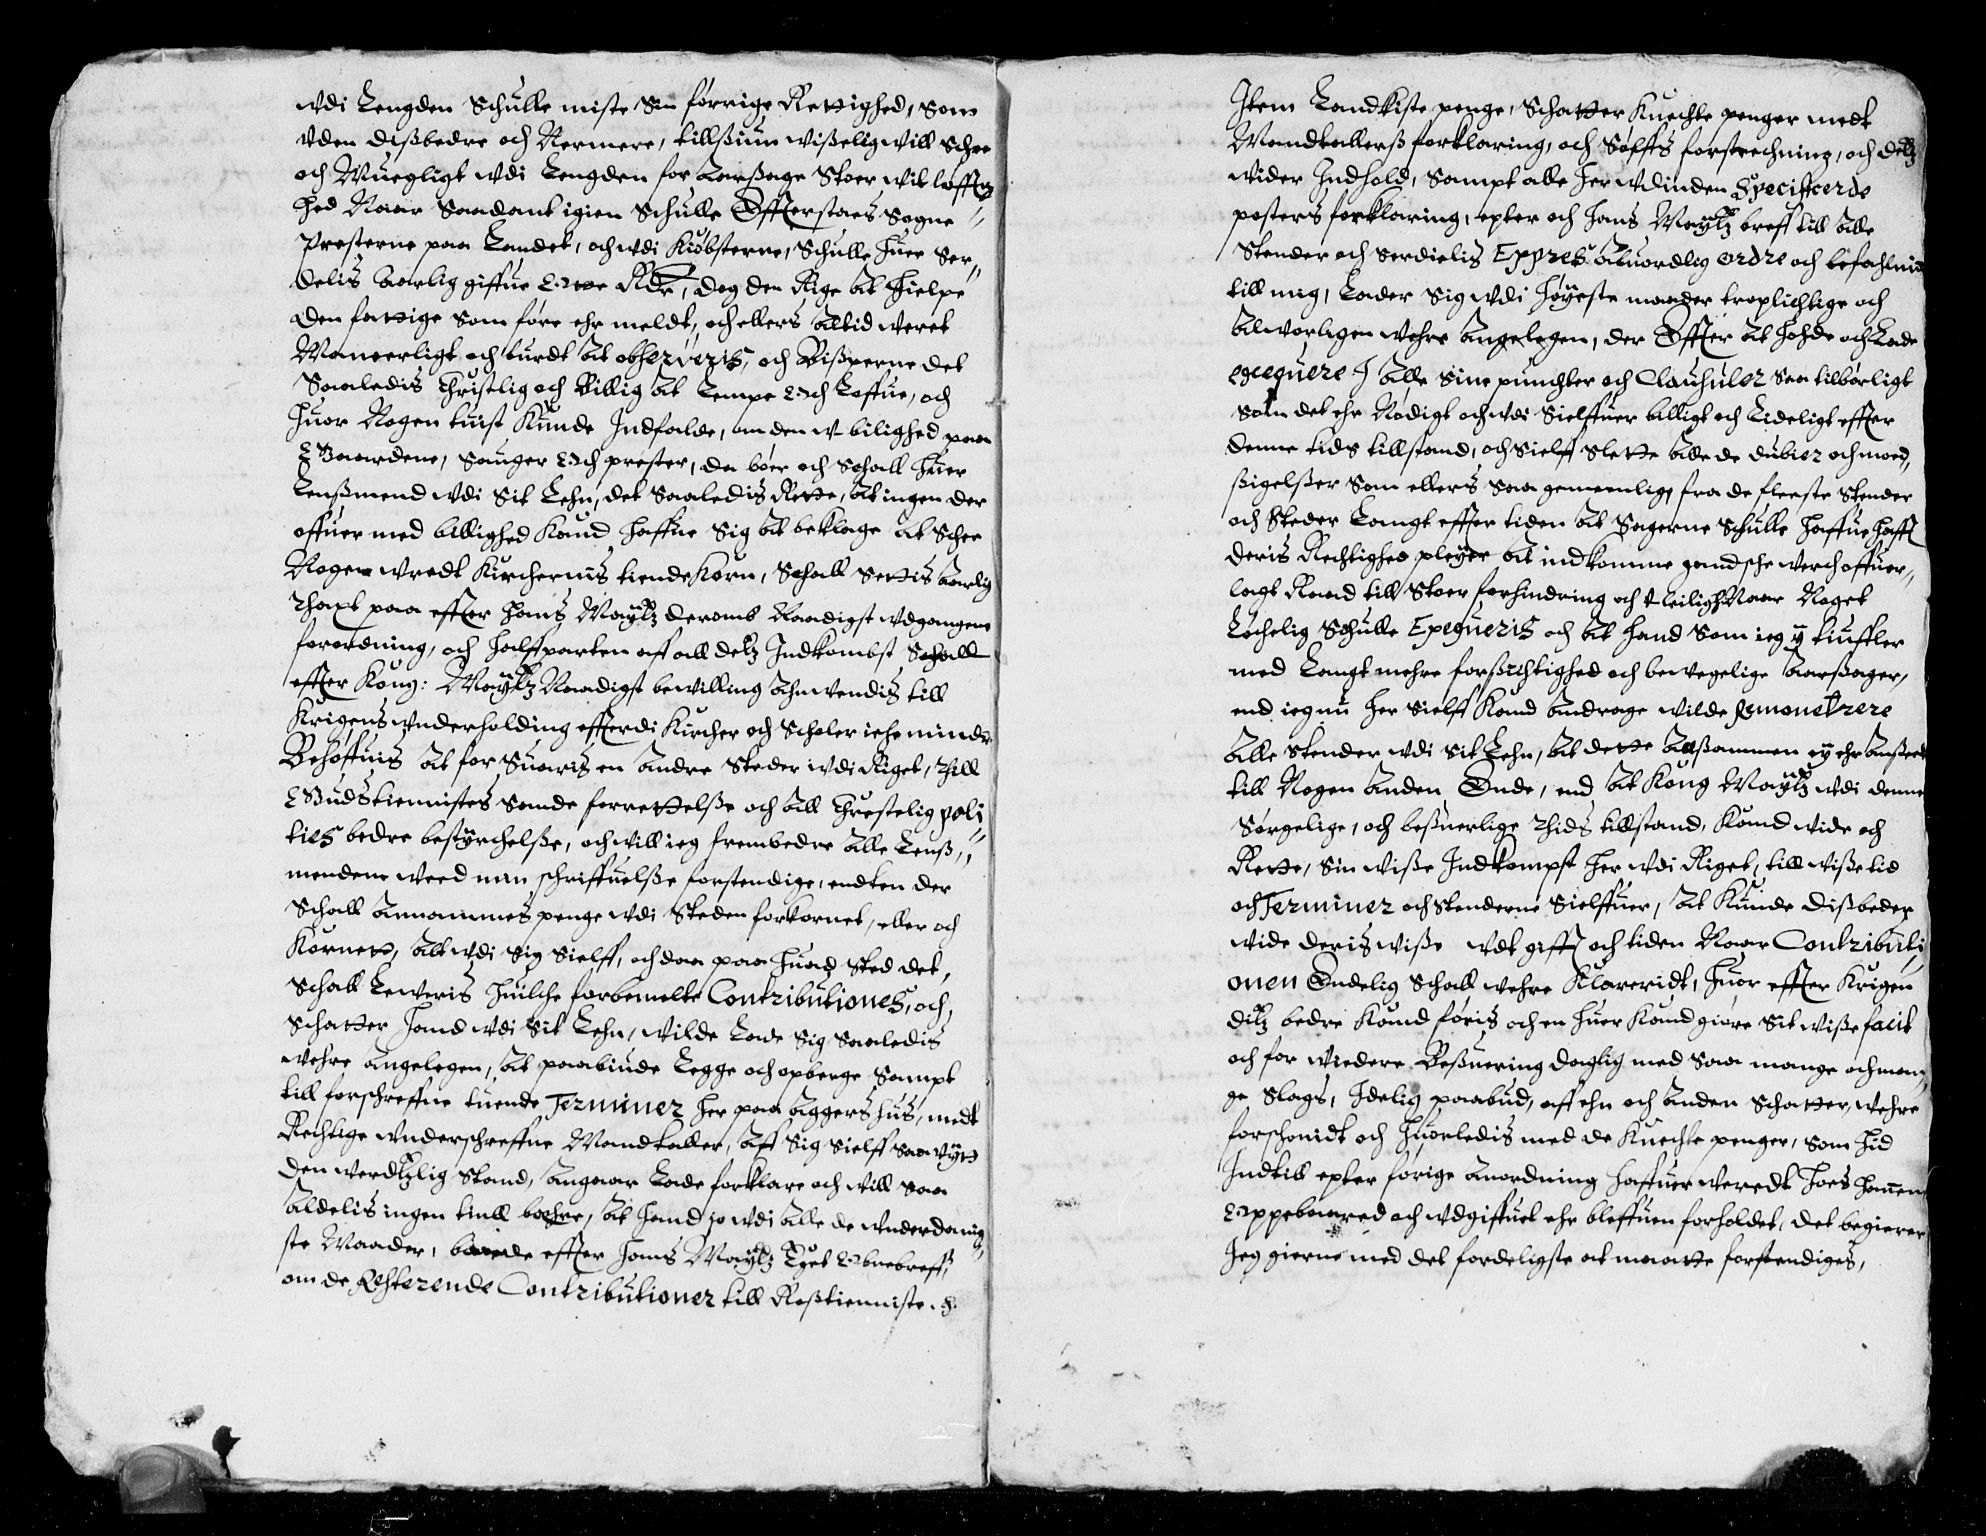 wdi Lengden Schulle miste Sin förrige Rettighed, Som
vden dißbedre och Nermere, tillßiun wißelig will Schee
och Muegligt wdi Lengden for aarßage Stoer wit löfftig
hed Naar Saadant igien Schulle Offterstaes Sogne
Presterne paa Landet, och wdi Kiöbsterne, Schulle huer Ser„
delis aarlig giffue Otte Rdr, dog den Rige at hielpe
den fattige Som före ehr meldt, och ellers altid weret
Maneerligt och burdt at obserueris, och Bißperne det
Saaledis Christlig och Billig at Lempe och Laffue, och
huor Nogen tuist Kunde Indfalde, om den w-bilighed paa
Gaardene, Sauger och prester, da böer och Schall huer
Lenßmend wdi Sit Lehn, det Saaledis Rette, at ingen der
offuer med billighed Kand haffue Sig at beklage at Schee
Nogen wredt Kirchernis tiende Korn, Schall Settis aarlig
Thaxt paa effter hans Maytz deromb Naadigst wdgangene
forordning, och halffparten aff all detz Indkombst Schall
effter Kong: Maytz Naadigst bewilling ahnwendis till
Krigens wnderholding effterdi Kircher och Scholer iche mindre
Behöffuis at for Suaris en andre Steder wdi Riget, Till
Gudstiennistes Sande forrettelße och all Chrestelig poli
ties bedre bestyrchelße, och will ieg frembedre alle Lenß„
mendene weed min schriffuelße forstendige, endten der
Schall annammes penge wdi Steden for kornet, eller och
Kornet, alt wdi Sig Sielff, och daa paa huad Sted det,
Schall Leweris huilche forbemelte Contributiones, och,
Schatter hand wdi Sit Lehn, wilde Lade Sig Saaledis
wehre angelegen, at paabiude Legge och opberge Sampt
till forschreffne tuende Terminer her paa Aggershus, medt
Rechtige wnderschreffne Mandtaller, aff Sig Sielff Saa vijtt
den werdtzlig Stand, angaar Lade forklare och will Saa
aldelis ingen tiull baehre, at hand jo wdi alle de wnderdanig„
ste Maader, baade effter hans Maytz Eget Obnebreff,
om de Resterende Contributioner till Roßtienniste. S.
Item Landkiste penge, Schatter Knechte penger medt
Mandtallerß forklaring, och Söffts forstrechning, och detz
wider Indhold, Sampt alle her wdinden Specificerde
posters forklaring, epter och hans Maytz breff till alle
Stender och Serdielis Expres aluordlig ordre och befahlning
till mig, Lader Sig wdi höyeste maader troplichtige och
alworligen wehre angelegen, der Offuer at holde och Lade
exequere I alle Sine punchter och Clausuler Saa tilbörligt
Som det ehr Nödigt och wdi Sielffuer billigt och Lideligt effter
denne tids tillstand, och Sielff Slette alle de dubier och moed„
ßigelßer Som ellers Saa gemeenlig fra de fleeste Stender
och Steder Langt effter tiden at Sagerne Schulle haffue hafft
deris Rechtighed pleyer at indkomme gandsche werch offuer„
lagt Raad till Stoer forhindring och v-leilighed Naar Noget
Löchelig Schulle Exequeris och at hand Som ieg ey tiuffler
med Langt mehre forßichtighed och bewegelige aarßager,
end ieg nu her Sielff Kand andrage wilde Remonstrere
alle Stender wdi Sit Lehn, at dette altßammen ey ehr anßeet
till Nogen anden Ende, end at Kong Maytz wdi denne
Sörgelige, och beßuerlige Thids tillstand, Kand wide och
Rette, Sin wiße Indkompst her wdi Riget, till wiße tid
och Terminer och Stenderne Sielffuer, at Kunde dißbedre
wide deris wiße wdt gifft och tiden Naar Contributi
onen Endelig Schall wehre Klareridt, huor effter Krigen
ditz bedre Kand föris och en huer Kand giöre Sit wiße facit
och for wiedere Beßuering daglig med Saa mange och man„
ge Slags, Idelig paabud, aff ehn och anden Schatter, wehre
forschonidt och huorledis med de Knechte penger, Som hid
Indtill epter forige anordning haffuer weredt hoes hannem
Oppebaared och wdgiffuet ehr bleffuen forholdet, det begierer
Jeg gierne med det fordeligste at maatte forstendiges,